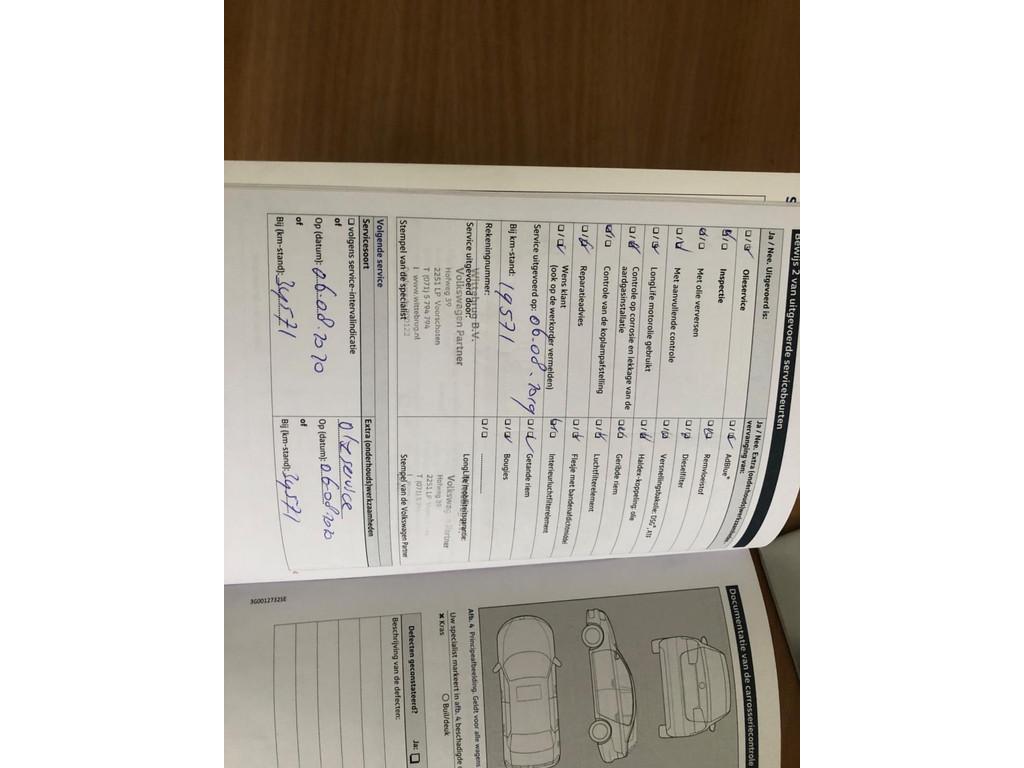 Bewijs 2 van uitgevoerde servicebeurten
Ja / Nee. Uitgevoerd is:
Olieservice
Inspectie
Met olie verversen
Met aanvullende controle
LongLife motorolie gebruikt
Controle op corrosie en lekkage van de
aardgasinstallatie
Controle van de koplampafstelling
Reparatieadvies
Wens klant
(ook op de werkorder vermelden)
Service uitgevoerd op: 06.08.2019
Bij km-stand: 19571
Rekeningnummer:
Service uitgevoerd door:
Wittebrug B.V.
Volkswagen Partner
Hofweg 39
2251 LP Voorschoten
T (071) 5 794 794
I www.wittebrug.nl
Stempel van de specialist
Ja / Nee. Extra (onderhouds)werkzaamheden,
vervanging van:
AdBlue®
Remvloeistof
Dieselfilter
Versnellingsbakolie: DSG®, ATF
Haldex-koppeling: olie
Geribde riem
Luchtfilterelement
Flesje met bandenafdichtmiddel
Interieurluchtfilterelement
Getande riem
Bougies
LongLife mobiliteitsgarantie:
Volkswagen Partner
Hofweg 39
2251 LP
T (071) 5
Stempel van de Volkswagen Partner
Volgende service
Servicesoort
volgens service-intervalindicatie
of
Op (datum): 06.08.2020
of
Bij (km-stand): 34571
Extra (onderhouds)werkzaamheden
olie service
Op (datum): 06.08.2020
of
Bij (km-stand): 34571
3G0012732SE
Documentatie van de carrosseriecontrole
Afb. 4 Principeafbeelding. Geldt voor alle wagens
Uw specialist markeert in afb. 4 beschadigde
Kras
Buil/deuk
Defecten geconstateerd?
Ja:
Beschrijving van de defecten: